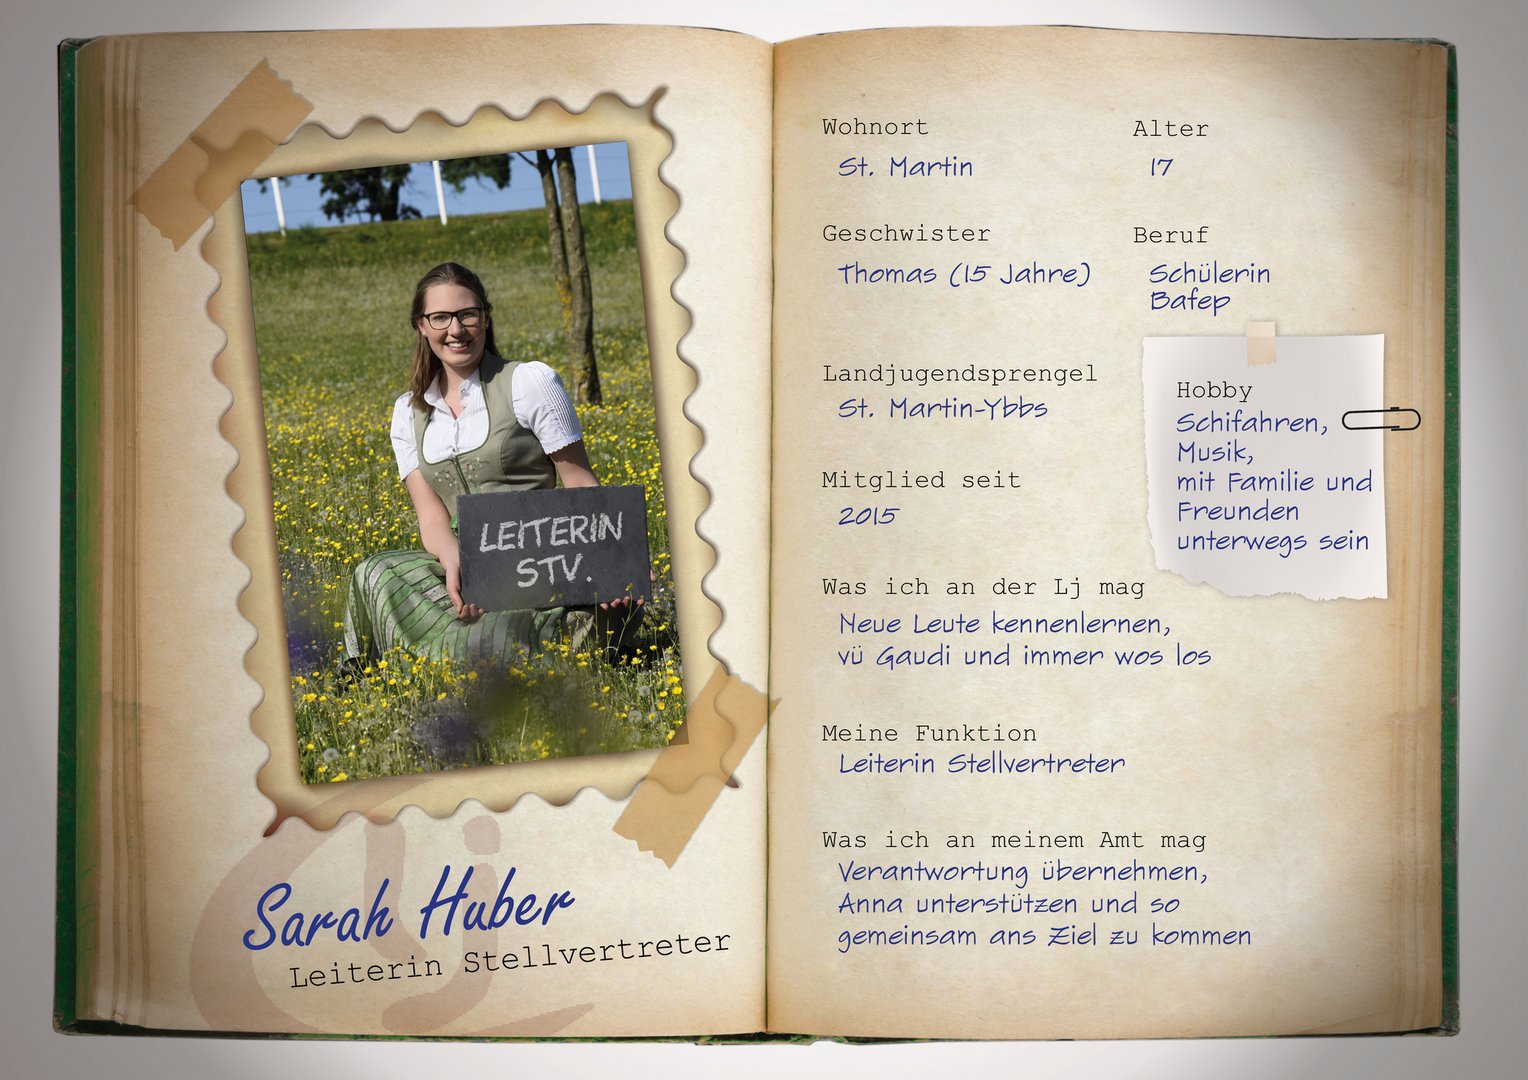 LEITERIN
STV.
Sarah Huber
Leiterin Stellvertreter
Wohnort
St. Martin
Alter
17
Geschwister
Thomas (15 Jahre)
Beruf
Schülerin
Bafep
Landjugendsprengel
St. Martin-Ybbs
Hobby
Schifahren,
Musik,
mit Familie und
Freunden
unterwegs sein
Mitglied seit
2015
Was ich an der Lj mag
Neue Leute kennenlernen,
vü Gaudi und immer wos los
Meine Funktion
Leiterin Stellvertreter
Was ich an meinem Amt mag
Verantwortung übernehmen,
Anna unterstützen und so
gemeinsam ans Ziel zu kommen
Lj